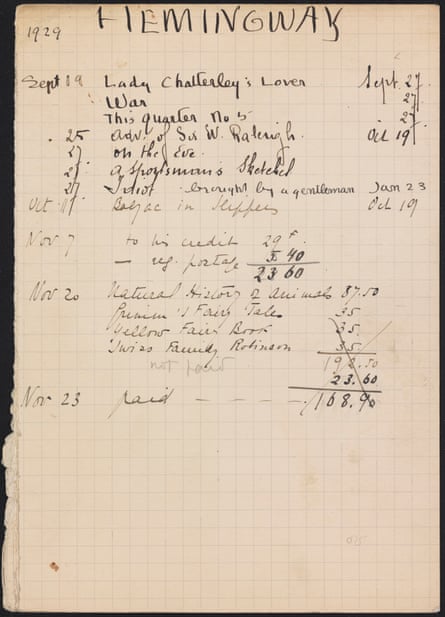 1929 HEMINGWAY
Sept 19 Lady Chatterley's Lover Sept. 27
War 27
This quarter No 5 27
25 Adv. of Sir W. Raleigh. Oct 19
27 On the Eve.
27 A Sportsman's Sketches
27 Idiot brought by a gentleman Jan 23
Oct 11 Balzac in Slippers Oct 19
Nov 7 to his credit 29f
— reg. postage 5.40
23 60
Nov 20 Natural History of Animals 87.50
Grimm's Fairy Tales 35
Yellow Fairy Book 35
Swiss Family Robinson 35
not paid 192.50
23.60
Nov 23 paid - - - - 168.90